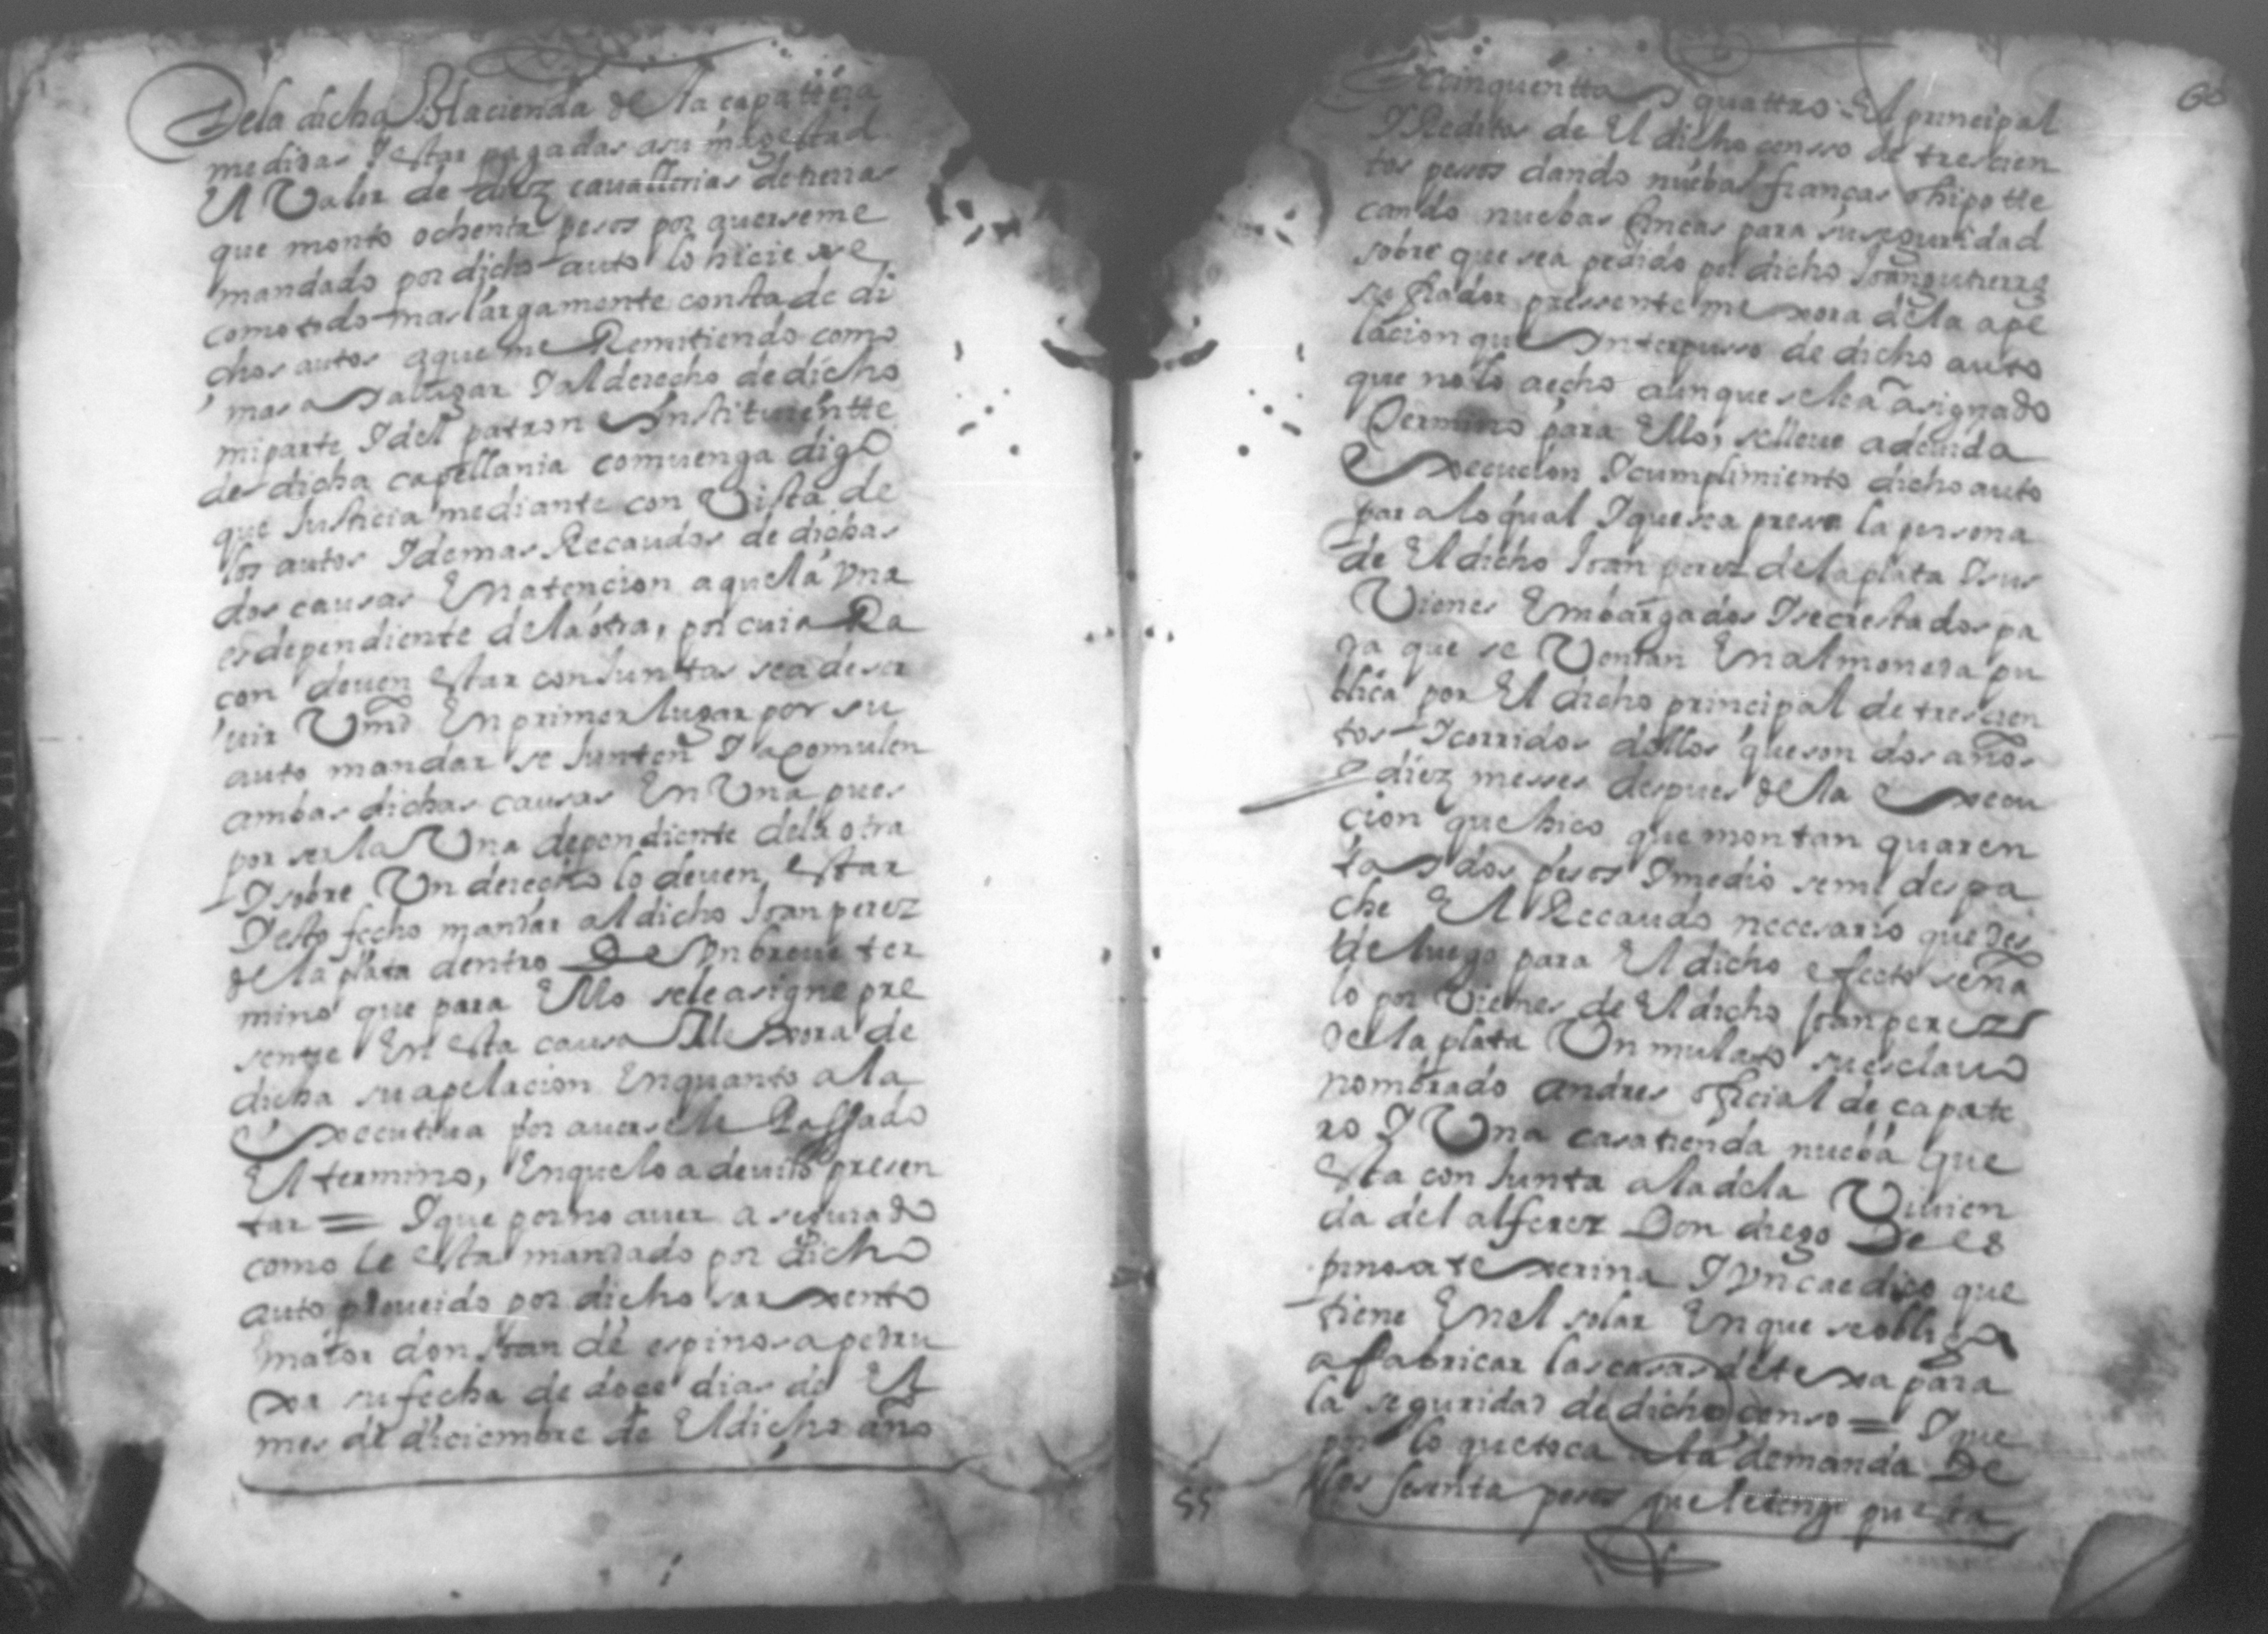 Dela dicha Hacienda de la capatera
medidas I estar pagadas asu magestad
El Valor de diez cauallerias detierras
que monto ochenta pesos por querseme
mandado por dicho auto lo hiciese
como todo mas largamente consta de di
chos autos aqueme Remitiendo como
mas a Saltagar I al derecho de dicho
miparte I del patron e Instituientte
de dicha capellania comuenga digo
que Justicia mediante con Vista de
los autos I demas Recaudos de dichas
dos causas En atencion aquela Vna
es dependiente de laotra, por cuia Ra
con deuen estar con Juntas sea deser
uir Vmd En primer lugar por su
auto mandar se Junten I acomulen
ambas dichas causas En Una pues
por ser la Una dependiente dela otra
I sobre Un derecho lo deuen estar
I esto fecho mandar al dicho Joan perez
de la plata dentro De Vn breue ter
mino que para Ello sele asigne pre
sentte En esta causa Mexora de
dicha su apelacion Enquanto ala
Executiua por auersele Passado
El termino, Enquelo a deuido presen
tar = I que por no auer asegurado
como le esta mandado por dicho
auto proueido por dicho sarxento
maior don Joan de espinosa pedru
xa su fecha de doce dias de El
mes de diciembre de El dicho año
55
60
cinquentta I quattro El principal
I Redito de El dicho censso de trescien
tos pesos dando nuebas fianças o hipotte
cando nuebas fincas para su seguridad
sobre que sea pedido por dicho Joan gutierrez
su fiador pressente mexora dela ape
lacion que Interpusso de dicho auto
que no lo aecho aunque sele a asignado
Termino para Ello, selleue adeuida
Execucion I cumplimiento dicho auto
para lo qual I que sea presa la persona
de El dicho Joan perez de la plata I sus
Vienes Embargados I secrestados pa
ra que se Vendan En almoneda pu
blica por El dicho principal de trescien
tos I corridos dellos que son dos años
I diez messes despues de la Execu
cion que hico que montan quaren
ta I dos pesos I medio seme despa
che El Recaudo necesario que des
de luego para El dicho efecto seña
lo por Vienes de El dicho Joan perez
de la plata Un mulato su esclauo
nombrado andres oficial de capate
ro I Una casa tienda nueba que
esta con Junta ala dela Viuien
da del alferez Don diego De es
pinosa texerina I Vn caedico que
tiene En el solar En que se obliga
a fabricar las casas de texa para
la seguridad de dicho censo = I que
por lo que toca ala demanda De
llos sesenta pesos que le tengo puesta